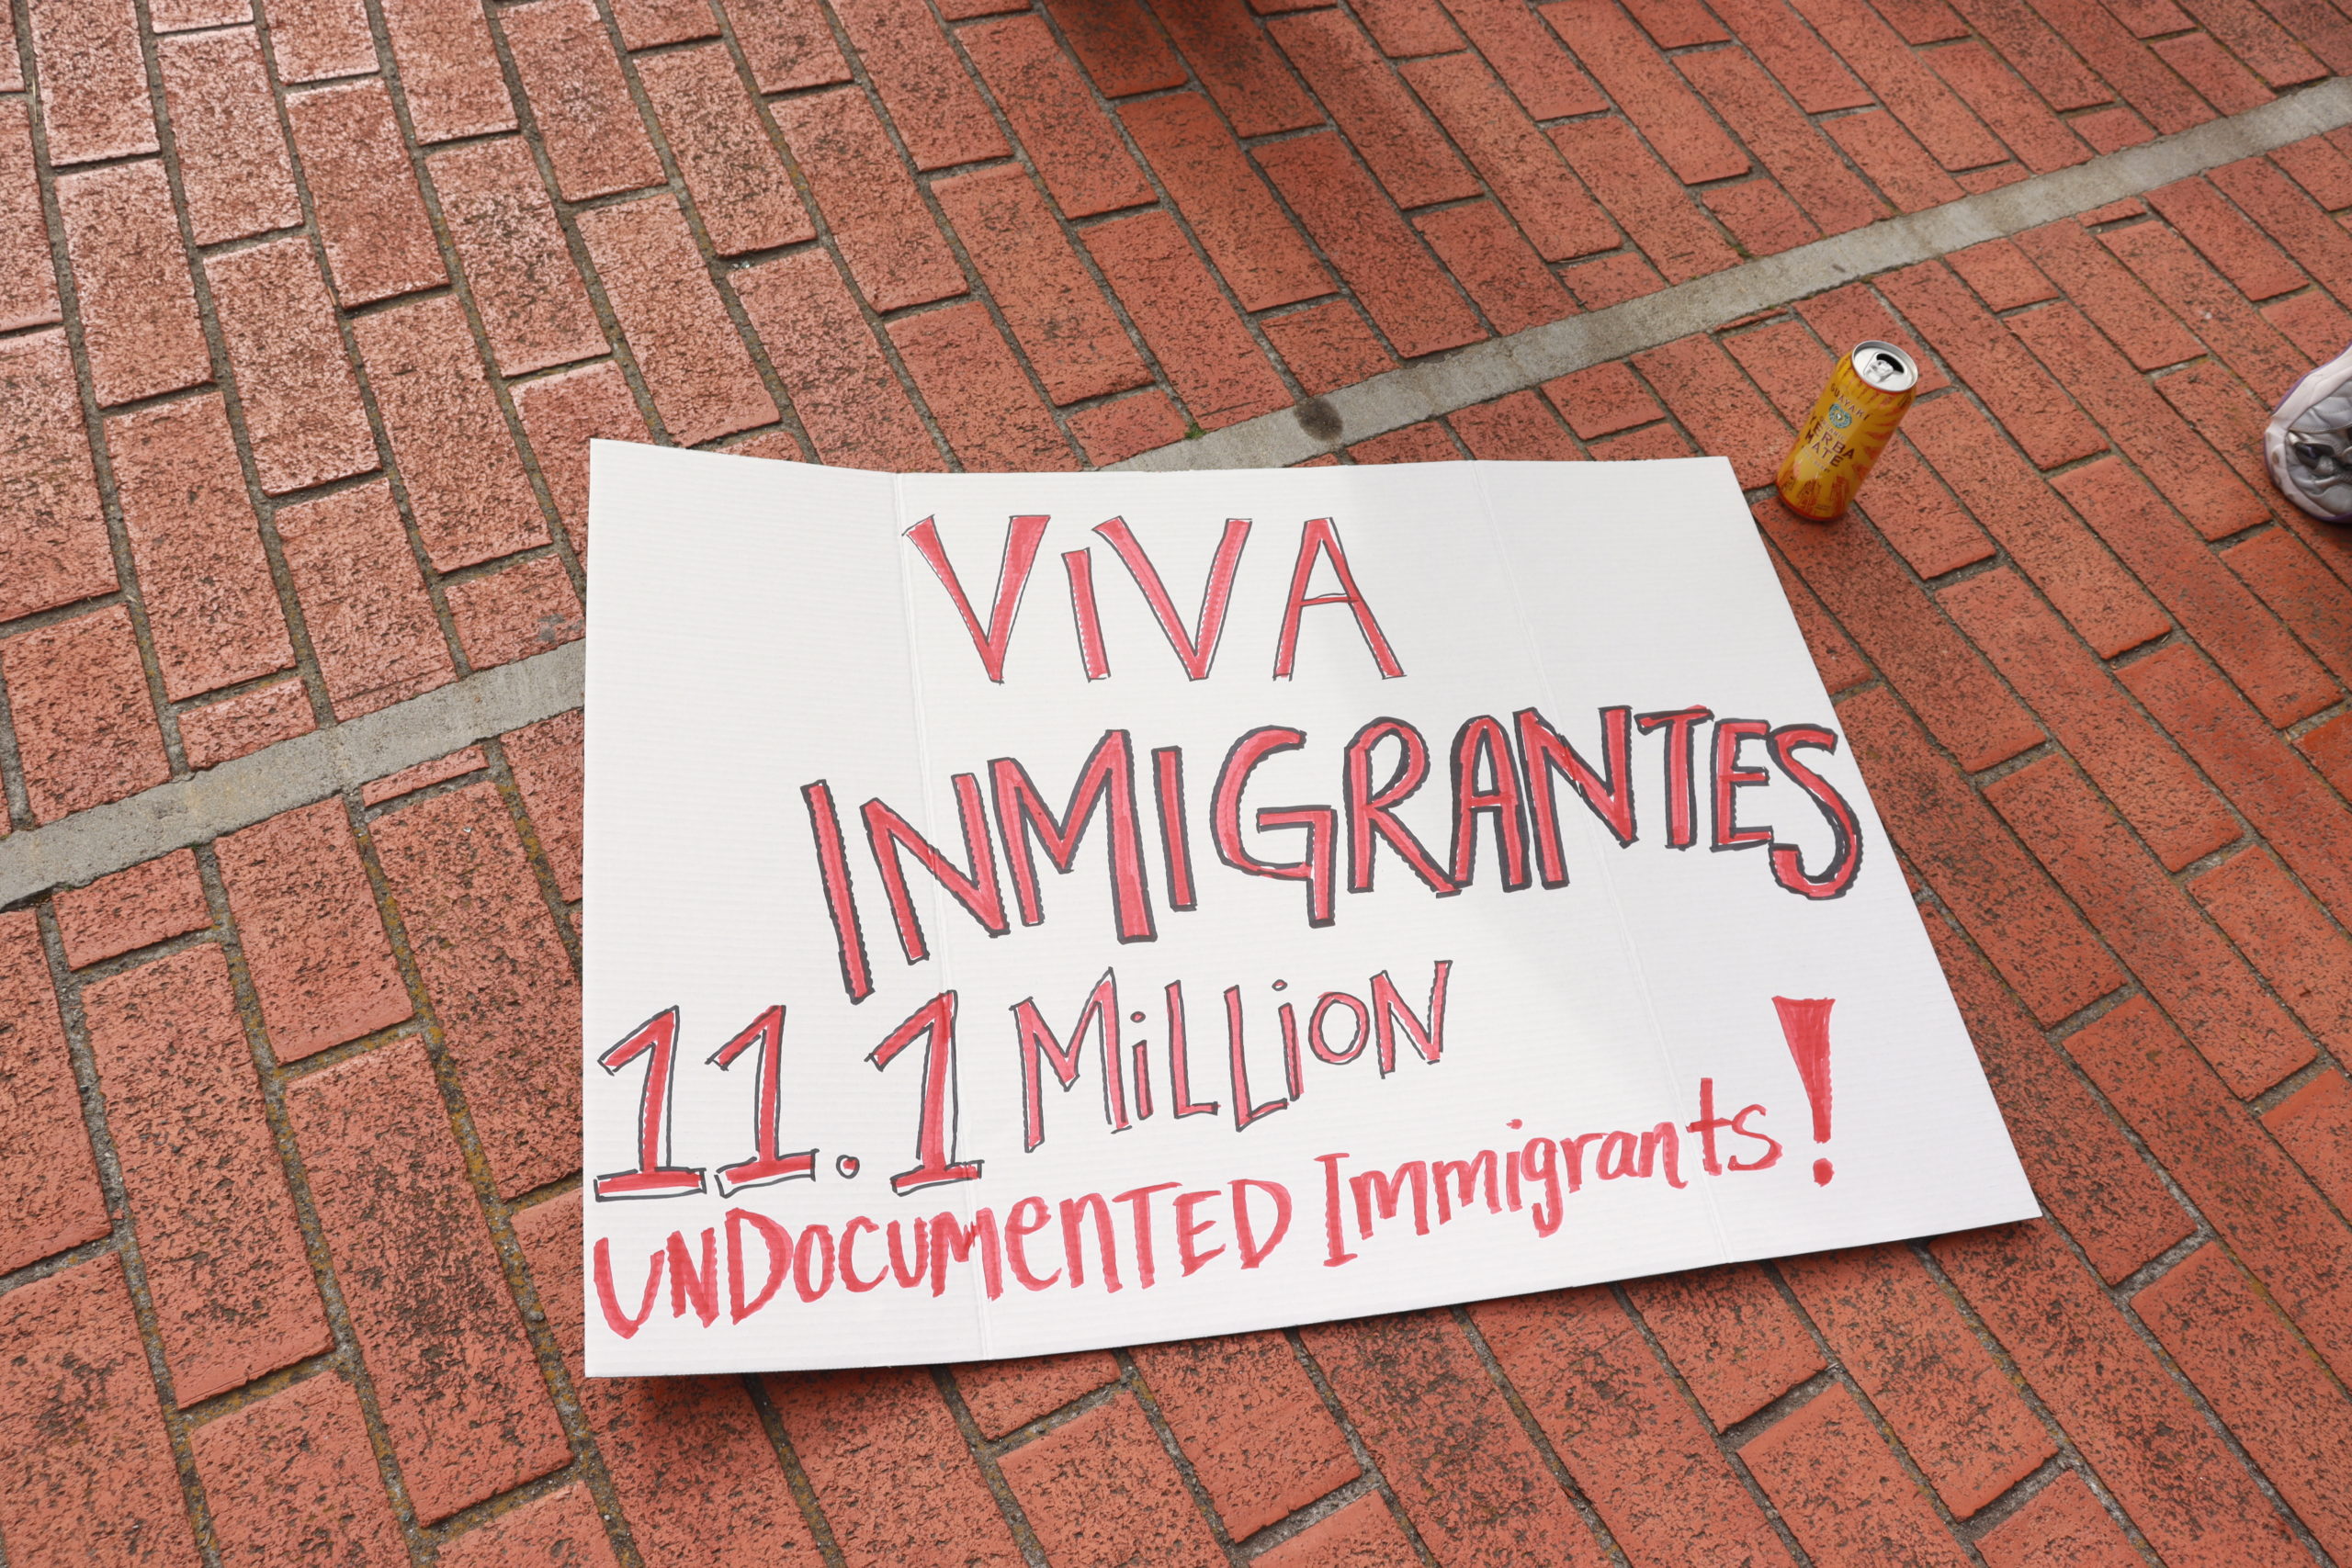 VIVA
INMIGRANTES
11.1 MILLION
UNDOCUMENTED Immigrants!
GUAYAKI
YERBA
MATE